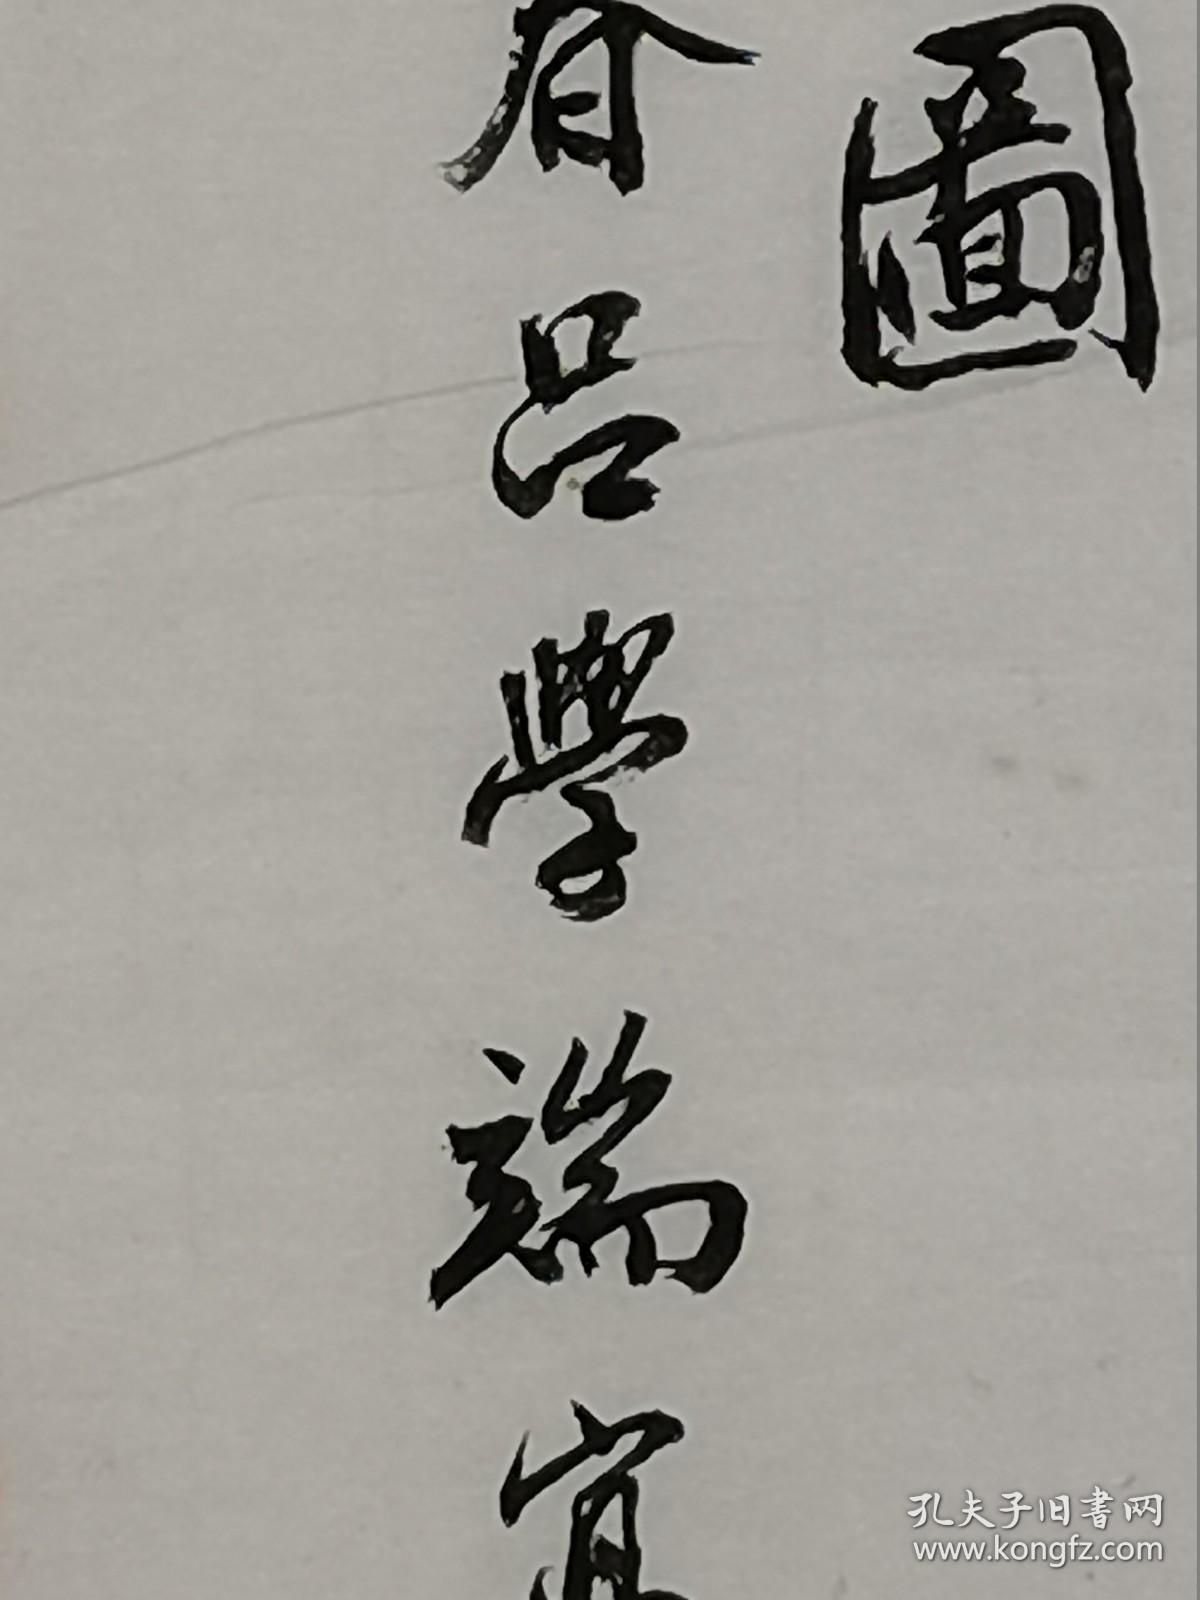 圖
春吕學端寫
孔夫子旧书网
www.kongfz.com